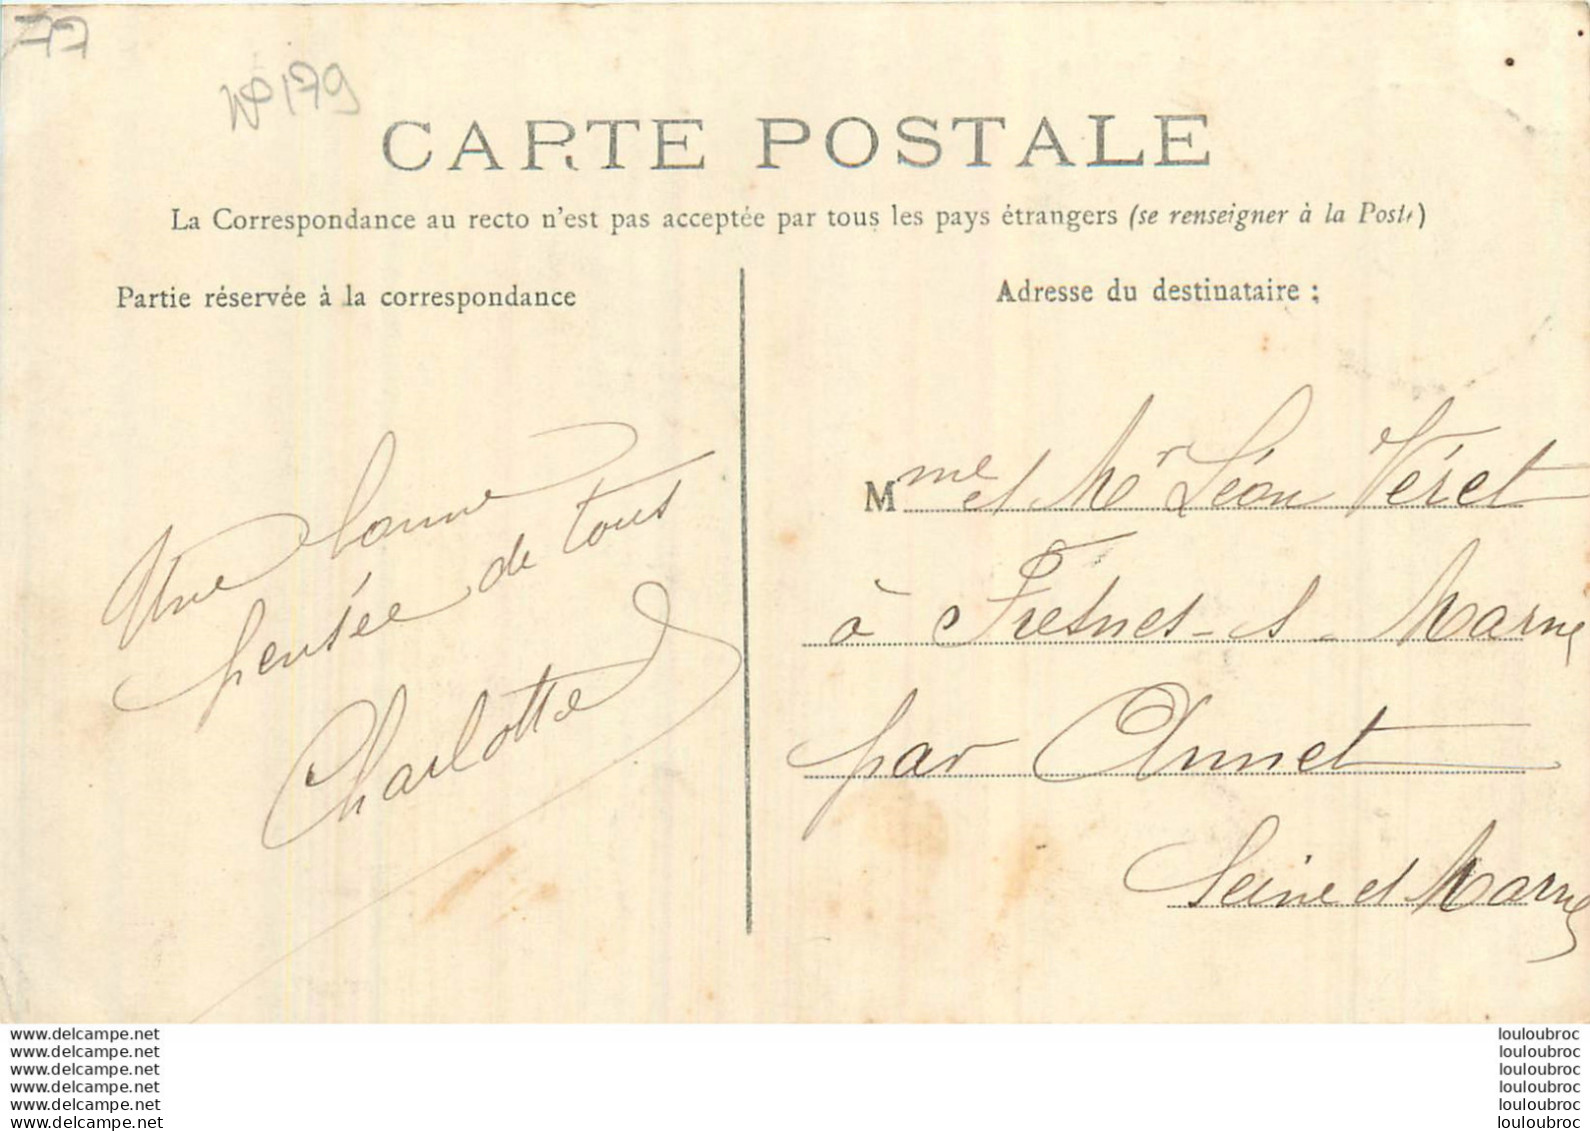 77
N° 179
CARTE POSTALE
La Correspondance au recto n'est pas acceptée par tous les pays étrangers (se renseigner à la Poste)
Partie réservée à la correspondance
Une bonne
pensée de tous
Charlotte
Adresse du destinataire :
Mme et Mr Léon Véret
à Fresnes-s-Marne
par Annet
Seine et Marne
www.delcampe.net
www.delcampe.net
www.delcampe.net
www.delcampe.net
www.delcampe.net
www.delcampe.net
louloubroc
louloubroc
louloubroc
louloubroc
louloubroc
louloubroc